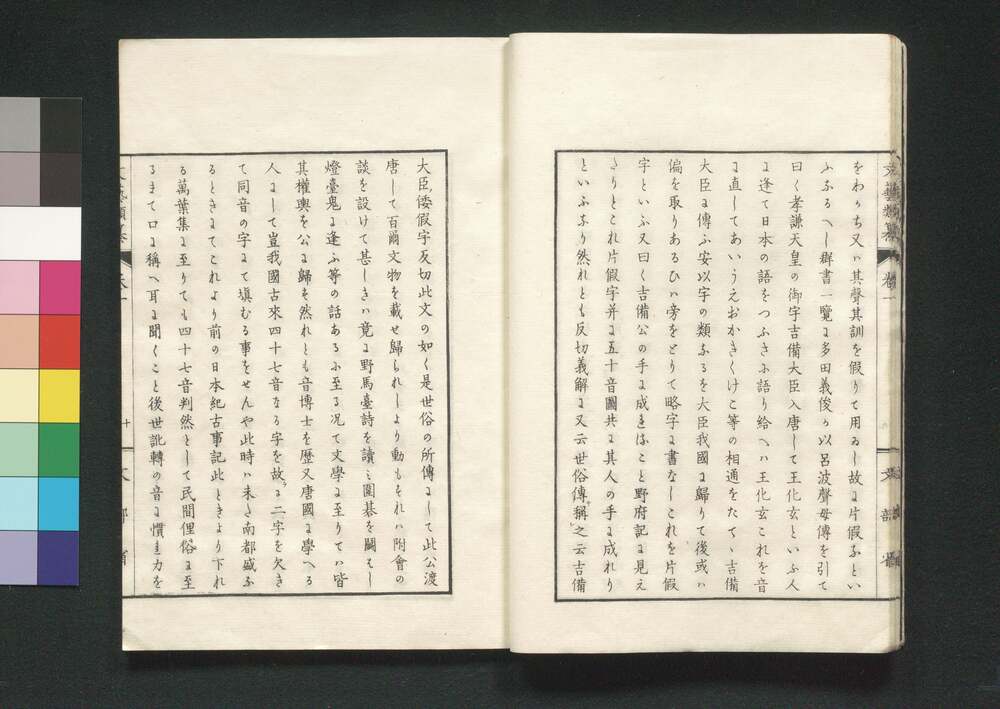 をわかち又ハ其聲其訓を假りて用ゐし故に片假なとい
ふなるへし群書一覽に多田義俊か以呂波聲母傳を引て
曰く孝謙天皇の御宇吉備大臣入唐して王化玄といふ人
に逢て日本の語をつふさに語り給へハ王化玄これを音
に直してあいうえおかきくけこ等の相通をたてゝ吉備
大臣に傳ふ安以字の類なるを大臣我國に歸りて後或ハ
偏を取りあるひハ旁をとりて略字に書なしこれを片假
字といふ又曰く吉備公の手に成ること野府記に見え
たりとこれ片假字并に五十音圖共に其人の手に成れり
といふなり然れとも反切義解に又云世俗傳稱之云吉備
大臣倭假字反切此文の如く是世俗の所傳にして此公渡
唐して百爾文物を載せ歸られしより動もそれハ附會の
談を設けて甚しきハ竟に野馬臺詩を讀ミ圍碁を鬭はし
燈臺鬼に逢ふ等の話あるに至る况て文學に至りてハ皆
其權輿を公に歸も然れとも音博士を歴又唐國に學へる
人にして豈我國古來四十七音なる字を故に二字を欠き
て同音の字にて塡むる事をせんや此時ハ未た南都盛な
るときにてこれより前の日本紀古事記此ときより下れ
る萬葉集に至りても四十七音判然として民間俚俗に至
るまて口に稱へ耳に聞くこと後世訛轉の音に慣れ力を
文藝類纂 卷一
十 文部省